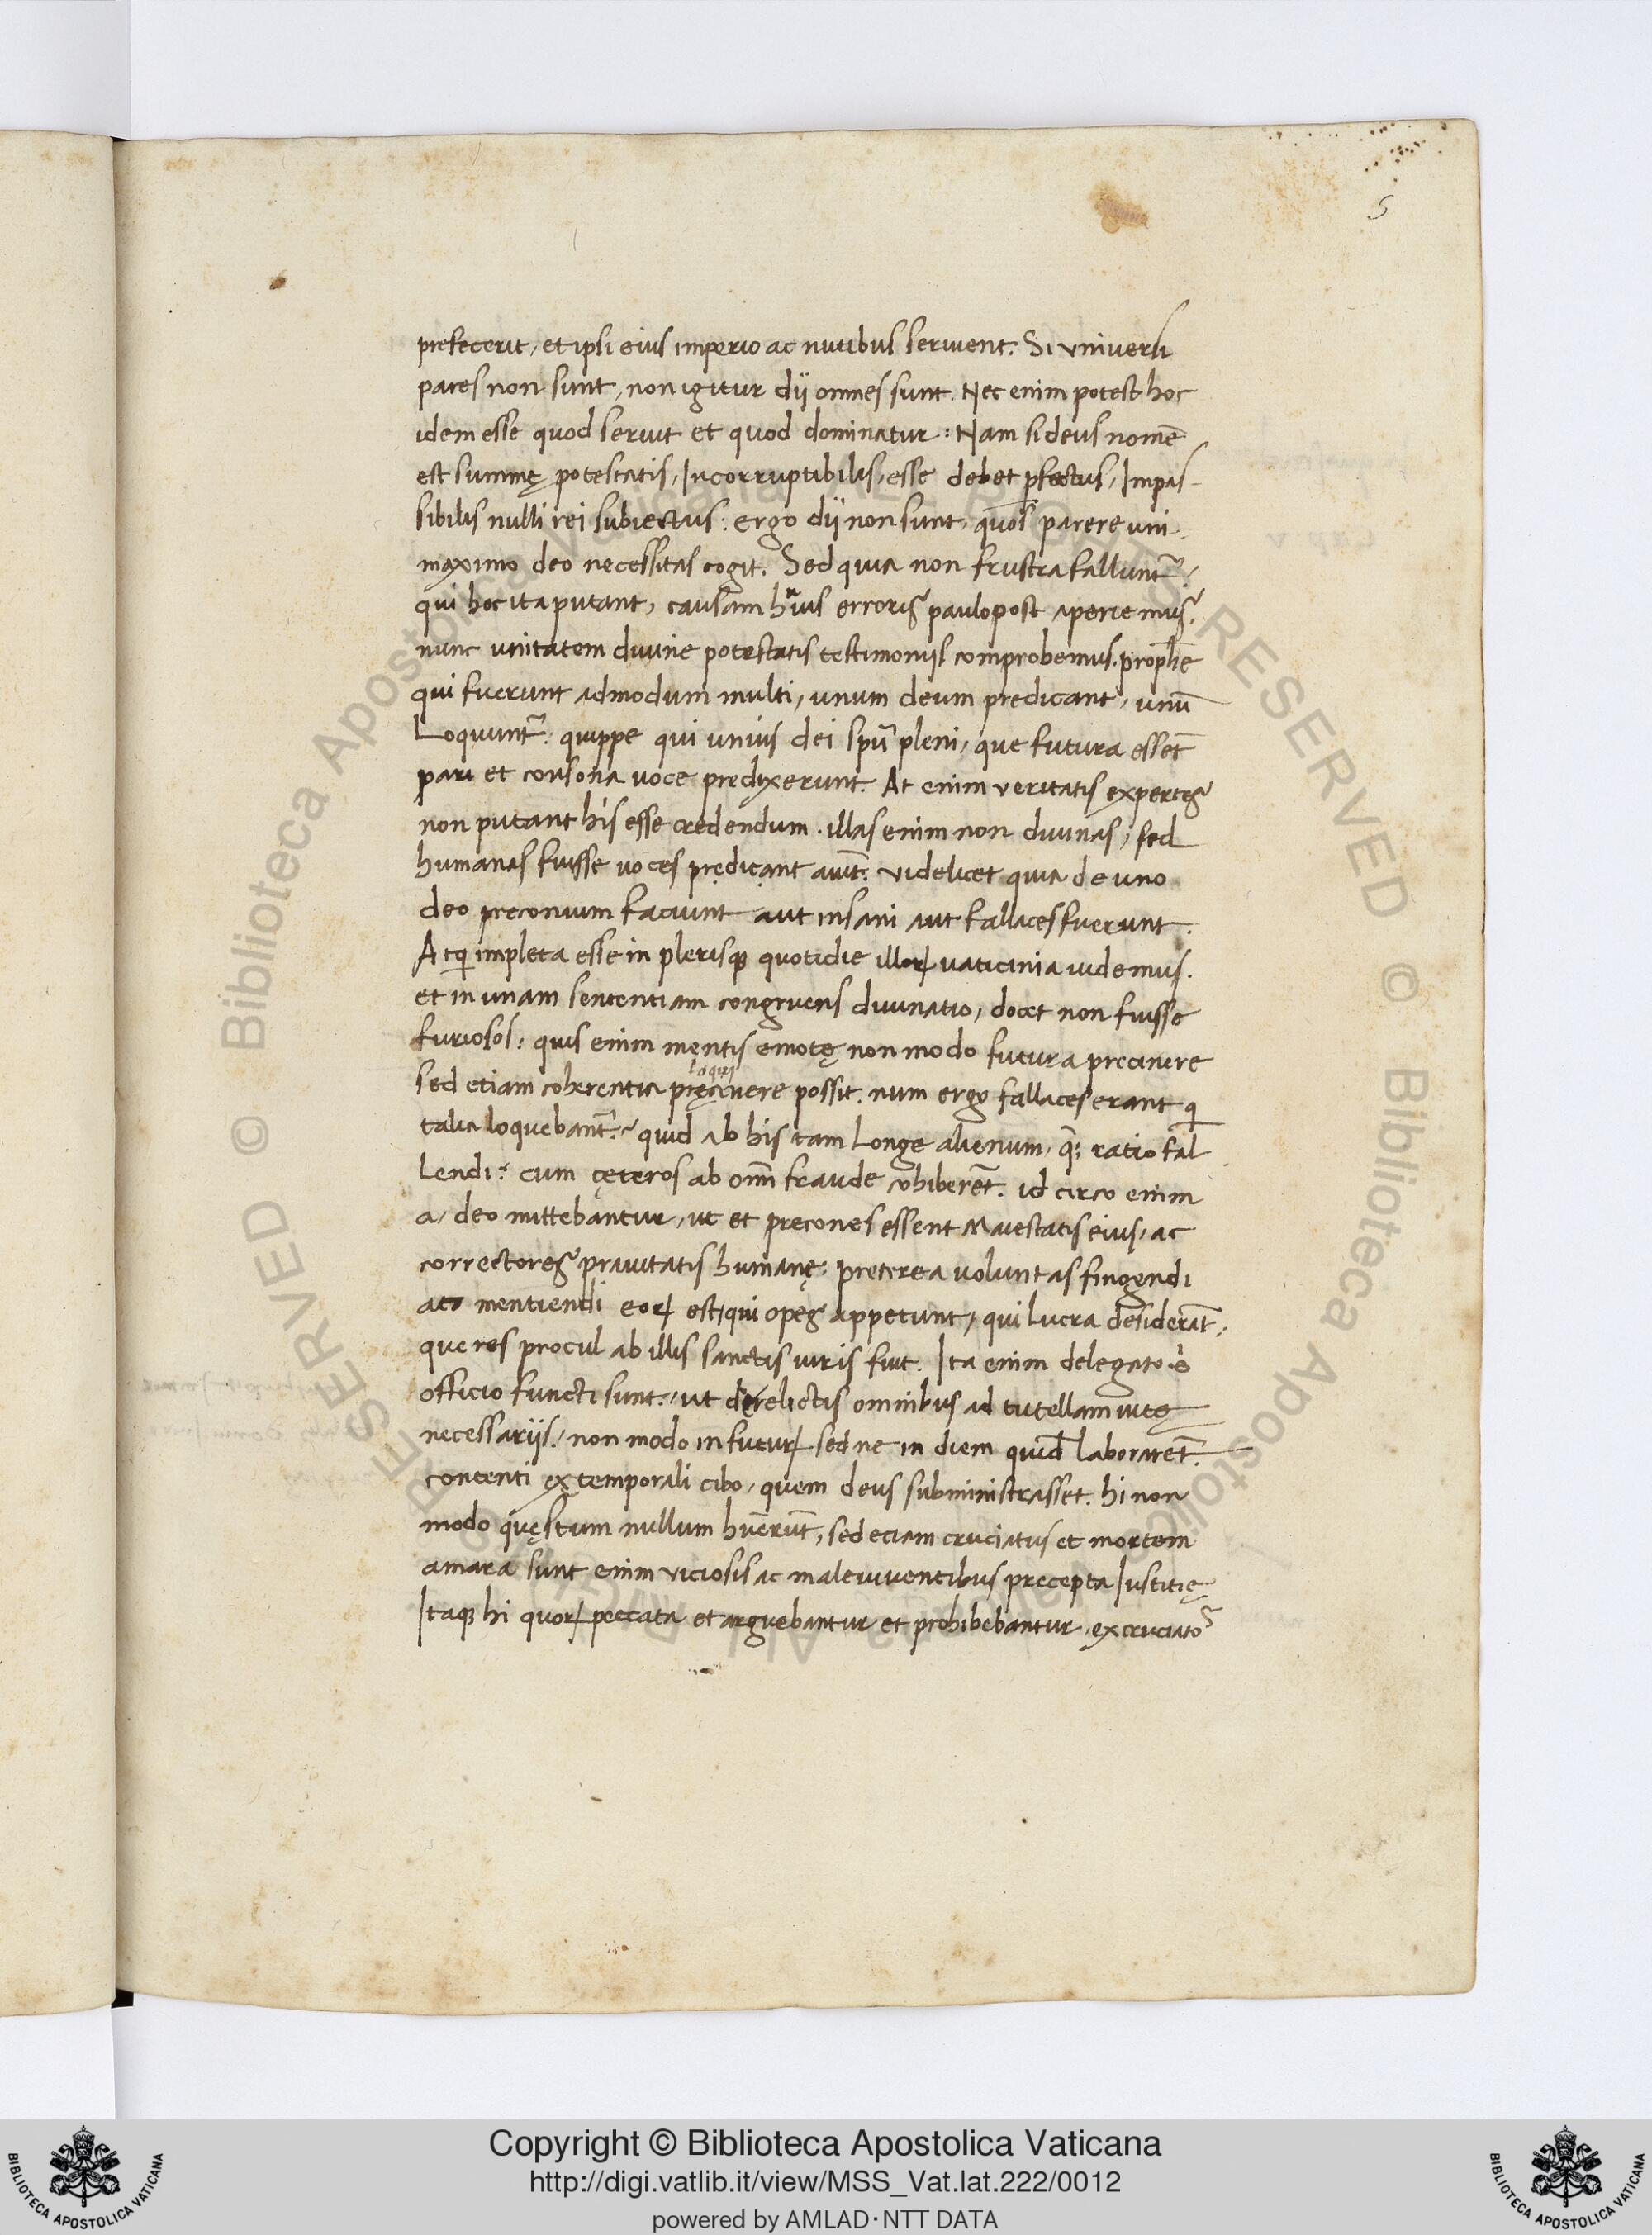 5
prefecerit, et ipsi eius imperio ac nutibus seruient. Si vniuersi
pares non sunt, non igitur dij omnes sunt. Nec enim potest hoc
idem esse quod seruit et quod dominatur: Nam si deus nomē
est summę potestatis, Incorruptibilis, esse debet ꝑfectus, Impas-
sibilis nulli rei subiectus: ergo dij non sunt, quos parere uni
maximo deo necessitas cogit. Sed quia non frustra falluntᷣ
qui hoc ita putant, causam huius erroris paulo post aperiemus.
nunc vnitatem diuine potestatis testimonijs comprobemus. prophe
qui fuerunt admodum multi, unum deum predicant, unū
Loquuntᷣ: quippe qui unius dei spū pleni, que futura essēt
pari et consona uoce predixerunt. At enim veritatis expertes
non putant his esse credendum. illas enim non diuinas, sed
humanas fuisse uoces prędicant aiūt. videlicet quia de uno
deo preconium faciunt aut insani aut fallaces fuerunt.
Atqi impleta esse in plerisqꝫ quotidie illoꝝ uaticinia uidemus.
et in unam sententiam congruens diuinatio, docet non fuisse
furiosos: quis enim mentis emotę non modo futura precinere
loqui
sed etiam coherentia pręcinere possit. num ergo fallaces erant qi
talia loquebantᷣ? quid ab his tam Longe alienum, qꝫ ratio fal
lendi? cum cęteros ab omī fraude cohiberēt. id circo enim
a, deo mittebantur, ut et precones essent Maiestatis eius, ac
correctores prauitatis humanę: preterea voluntas fingendi
ac mentiendi eoꝝ est, qui opes appetunt, qui lucra desiderāt,
que res procul ab illis sanctis uiris fuit. Ita enim delegato
officio functi sunt, ut derelictis omnibus ad tutellam uitę
necessarijs, non modo in futuꝝ sed ne in diem quid laborarēt.
contenti extemporali cibo, quem deus subministrasset. hi non
modo quęstum nullum huerūt, sed eciam cruciatus et mortem
amara sunt enim viciosis ac male uiuentibus precepta Iustitię
Itaqꝫ hi quoꝝ peccata et arguebantur et prohibebantur, excruciato
Copyright © Biblioteca Apostolica Vaticana
http://digi.vatlib.it/view/MSS_Vat.lat.222/0012
powered by AMLAD·NTT DATA
BIBLIOTECA APOSTOLICA VATICANA
BIBLIOTECA APOSTOLICA VATICANA